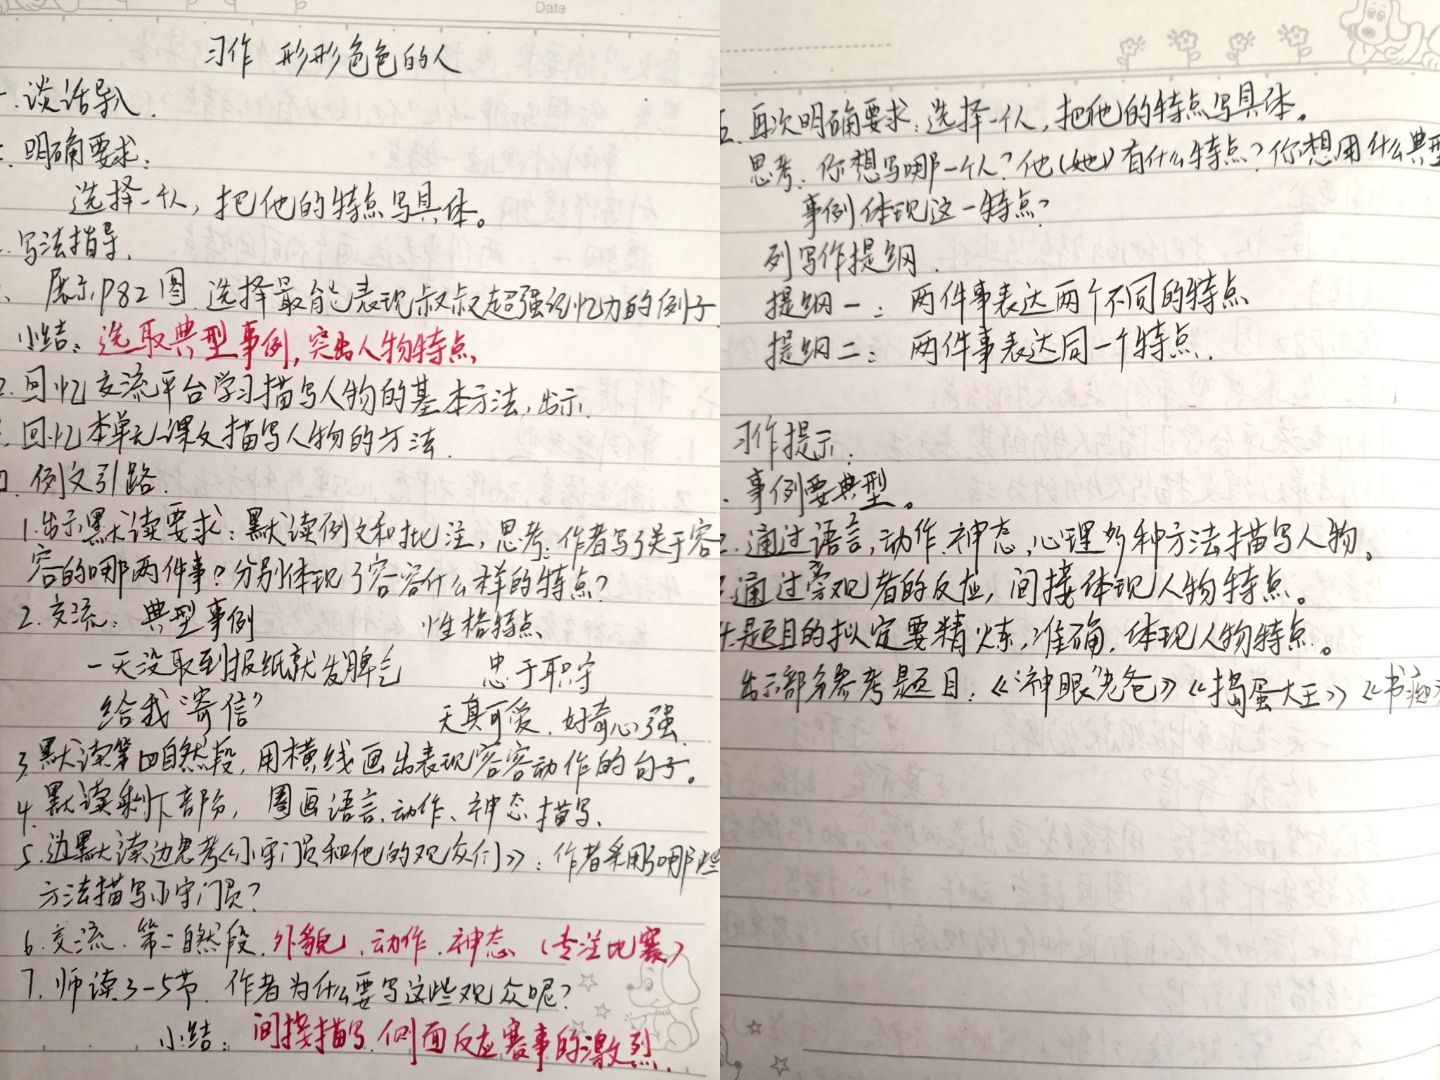 Date
习作 形形色色的人
一.谈话导入.
明确要求:
选择一个人,把他的特点写具体。
写法指导.
展示P82图.选择最能表现叔叔超强记忆力的例子
小结:选取典型事例,突出人物特点.
2.回忆交流平台学习描写人物的基本方法,出示.
3.回忆本单元课文描写人物的方法.
四.例文引路.
1.出示默读要求:默读例文和批注,思考:作者写了关于容
容的哪两件事?分别体现了容容什么样的特点?
2.交流:典型事例 性格特点
一天没取到报纸就发脾气 忠于职守
给我“寄信” 天真可爱.好奇心强.
3.默读第四自然段,用横线画出表现容容动作的句子。
4.默读剩下部分,圈画语言.动作、神态描写.
5.边默读边思考《小守门员和他的观众们》:作者采用了哪些
方法描写小守门员?
6.交流.第二自然段.外貌.动作.神态(专注比赛)
7.师读3-5节.作者为什么要写这些观众呢?
小结:间接描写.侧面反应赛事的激烈.
五.再次明确要求:选择一个人,把他的特点写具体。
思考:你想写哪一个人?他(她)有什么特点?你想用什么典型
事例体现这一特点?
列写作提纲.
提纲一:两件事表达两个不同的特点
提纲二:两件事表达同一个特点.
习作提示.
事例要典型。
2.通过语言,动作.神态,心理多种方法描写人物。
3.通过旁观者的反应,间接体现人物特点。
4.题目的拟定要精炼,准确,体现人物特点。
出示部分参考题目:《“神眼”老爸》《捣蛋大王》《书痴